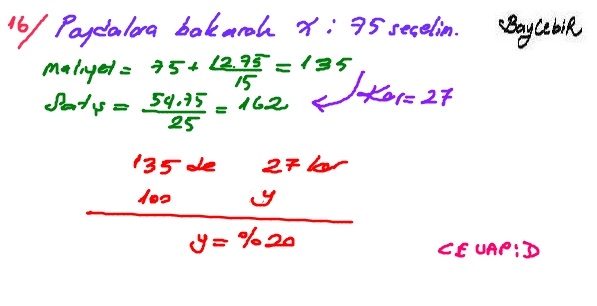 16/ Paydalara bakarak x : 75 seçelim.
BayCebiR
Maliyet = 75 + 12.75/15 = 135
Satış = 54.75/25 = 162
Kar = 27
135 de 27 kar
100 y
y = %20
CEVAP:D